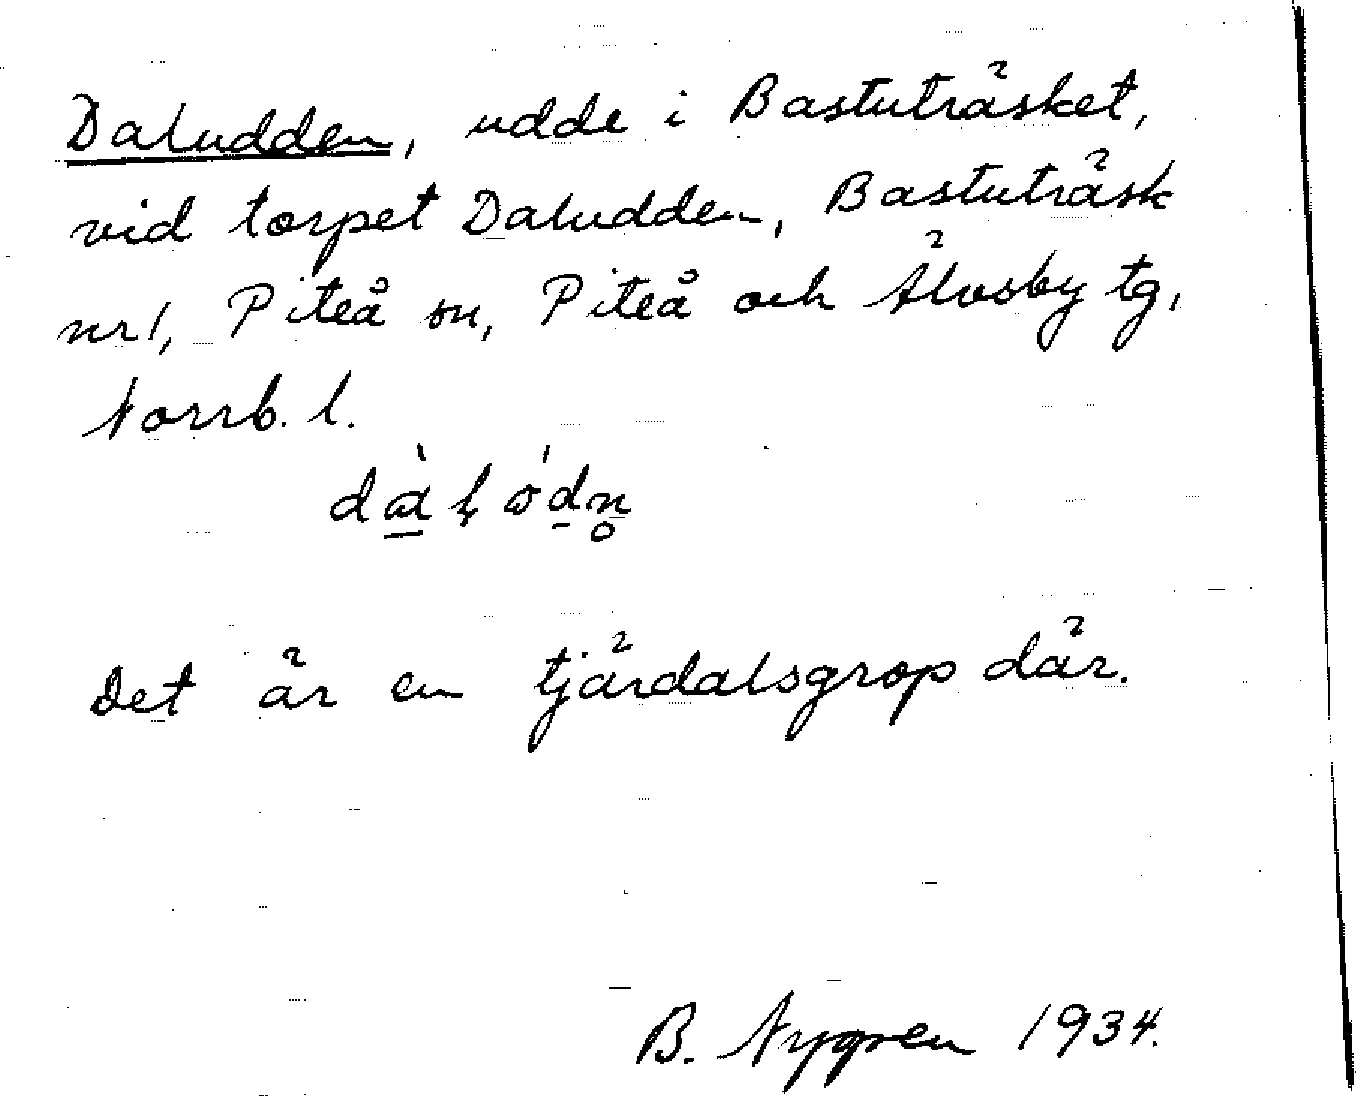 Daludden, udde i Bastuträsket,
vid torpet Daludden, Bastuträsk
nr 1, Piteå sn, Piteå och Älvsby tg,
Norrb. l.
Det är en tjärdalsgrop där.
B. Nygren 1934.